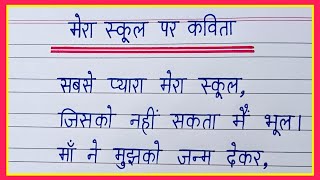 मेरा स्कूल पर कविता
सबसे प्यारा मेरा स्कूल,
जिसको नहीं सकता मैं भूल।
माँ ने मुझको जन्म देकर,